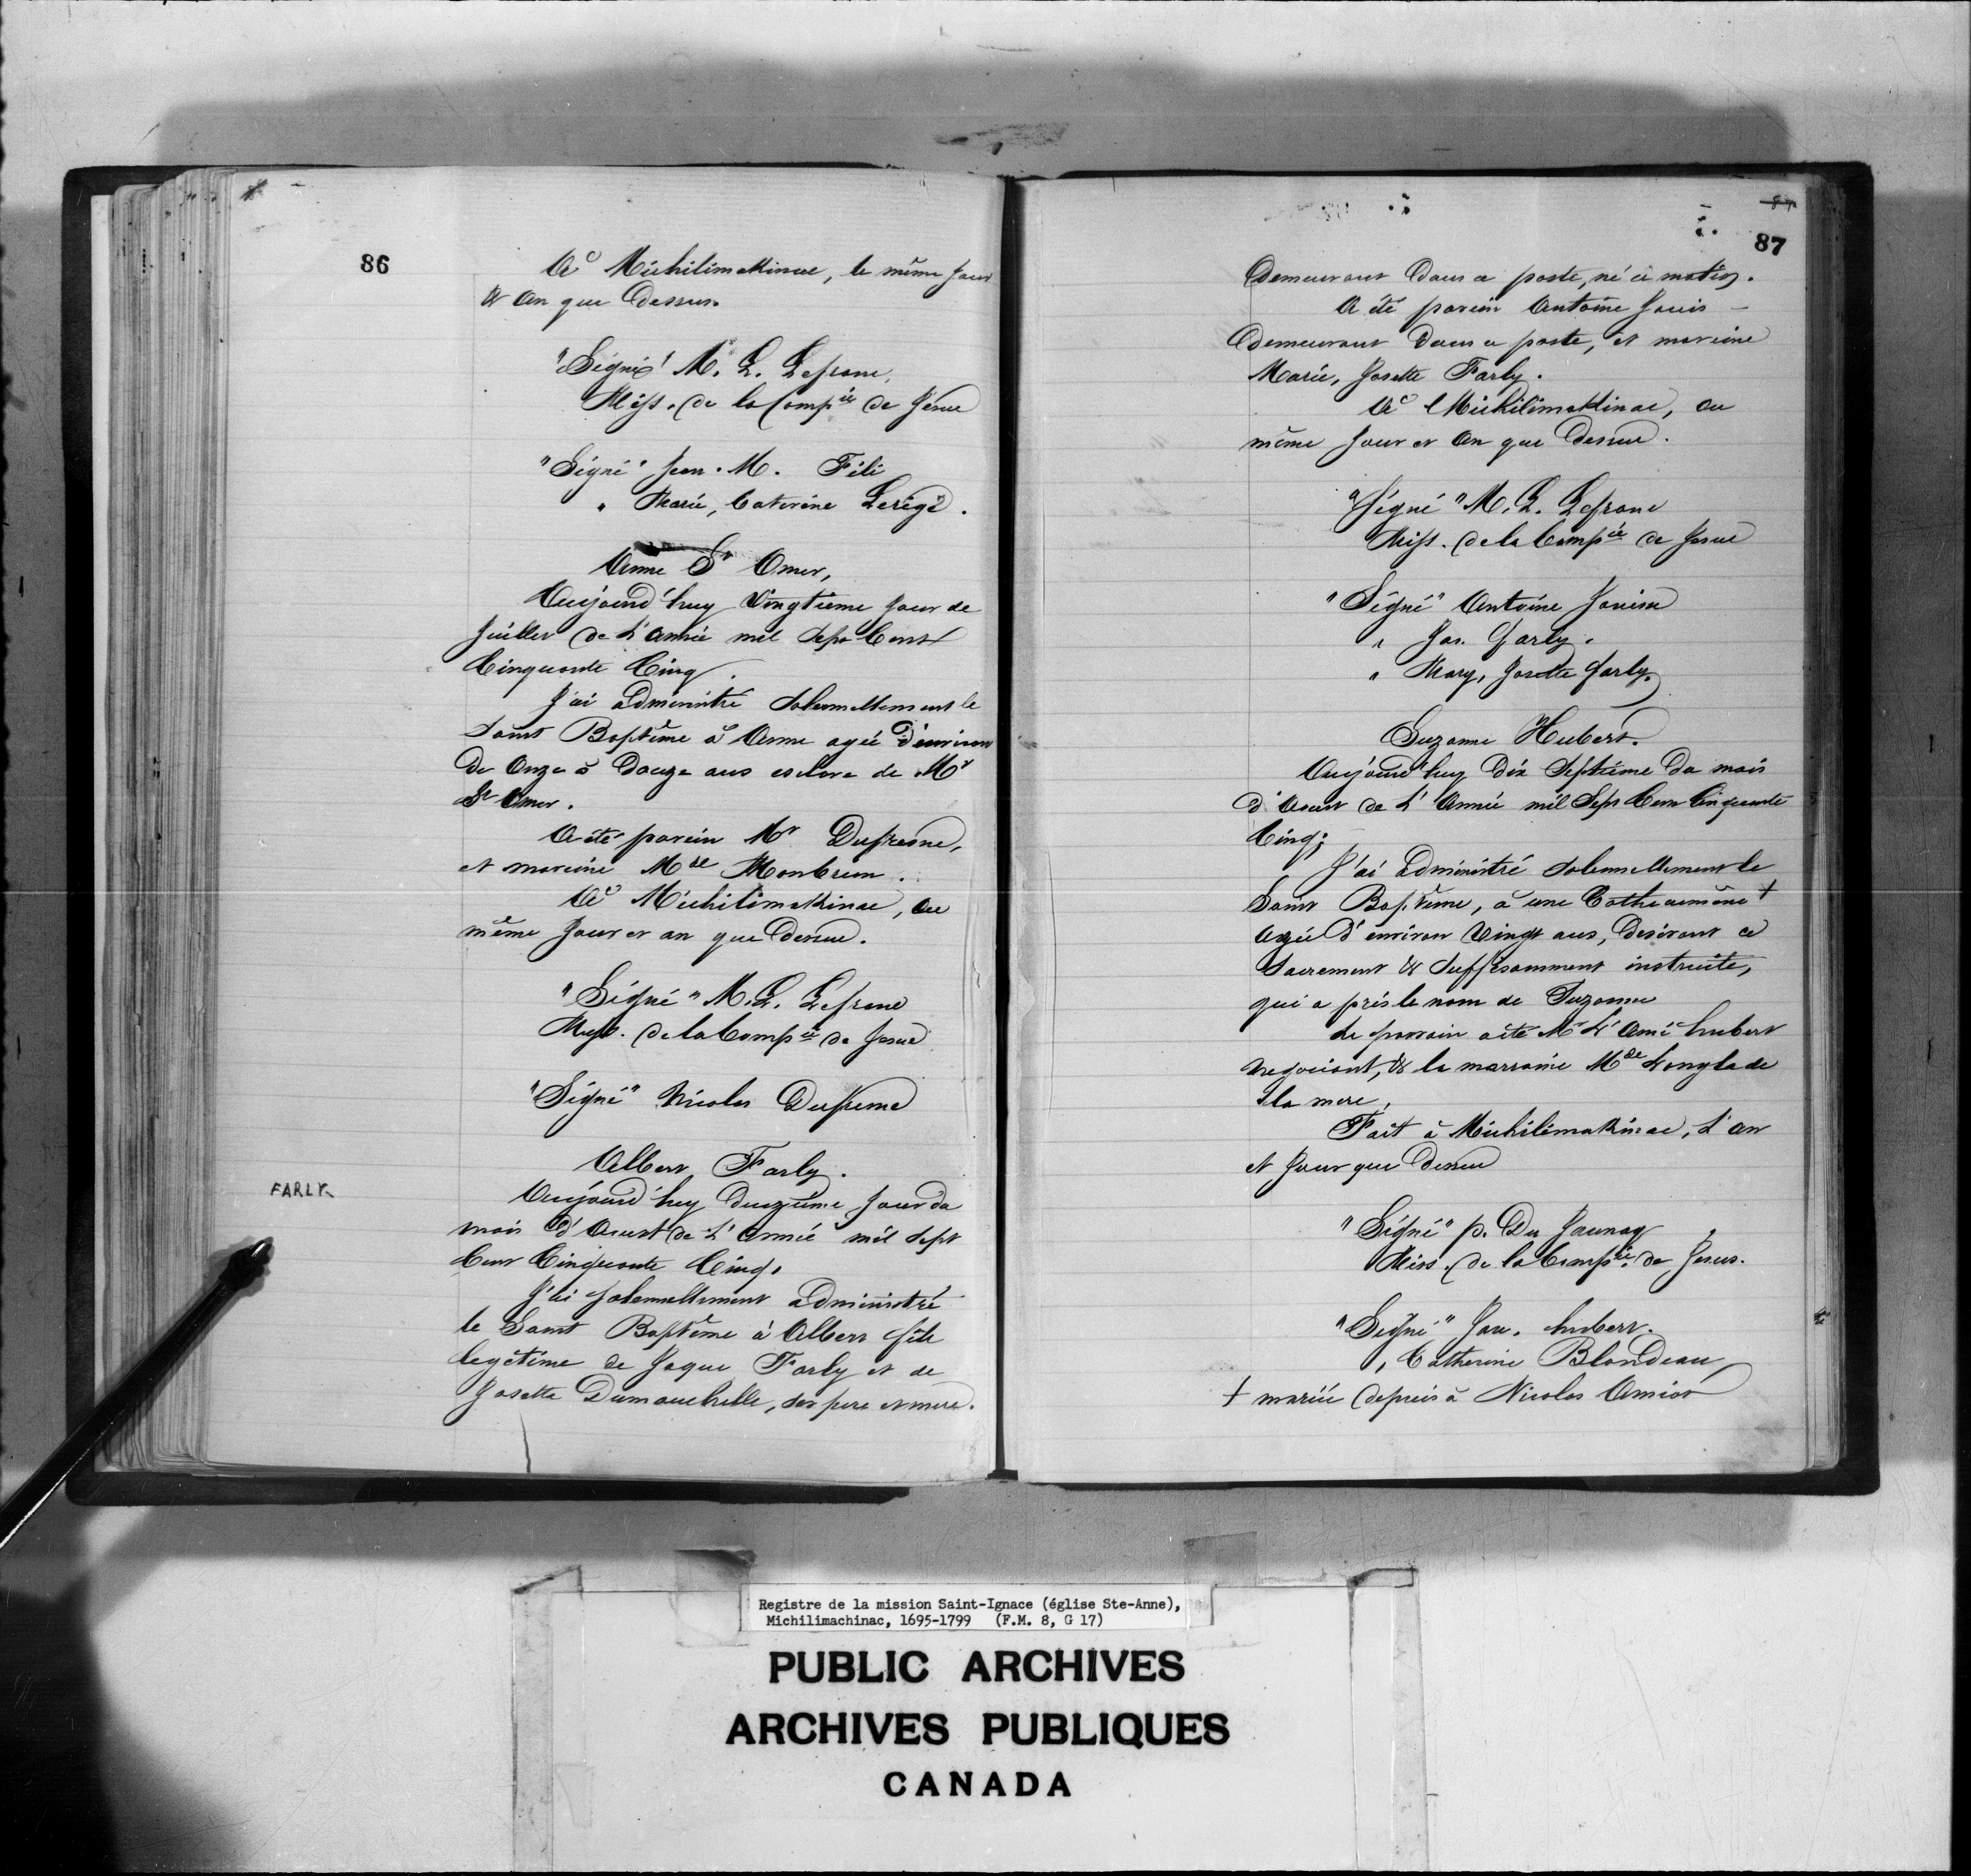 86
A Michilimakinac, le même Jour
& An que Dessus.
"Signé" M. L. Lefranc,
Miss. de la Compie de Jesus
"Signé" Jean. M. Fili
" Marie, Caterine Lerige.
Anne St Omer,
Aujourd'huy Vingtieme Jour de
Juillet de L'Année mil Sept Cent
Cinquante Cinq.
J'ai administré Solemellement le
Saint Baptême à Anne agée d'environ
De Onze à Douze ans esclave de Mr
St Omer.
A été parein Mr Dufresne,
et mareine Mde Monbrun.
A Michilimakinac, au
même Jour et an que Dessus.
"Signé" M. L. Lefranc
Miss. de la Compie de Jesus
"Signé" Nicolas Dufresne
FARLY
Albert Farly.
Aujourd'huy Duezième Jour du
mois d'Aoust de L'Année mil Sept
Cent Cinquante Cinq.
J'ai Solemellement administré
le Saint Baptême à Albert fils
legetime de Jaque Farly et de
Josette Dumouchelle, ses pere et mere.
87
Demeurant Dans ce poste, né ce matin.
A été parein Antoine Janis
Demeurant Dans ce poste, et mareine
Marie, Josette Farly.
A Michilimakinac, au
même Jour et An que Dessus.
"Signé" M. L. Lefranc
Miss. de la Compie de Jesus
"Signé" Antoine Janise
" Jas. Farly.
" Mary, Josette Farly.
Suzanne Hubert.
Aujourd'huy Dix Septième Du mois
d'Aoust de L'Année mil Sept Cent Cinquante
Cinq;
J'ai administré Solemnellement le
Saint Baptême, à une Cathecumène +
Agée d'environ Vingt ans, Desirant ce
Sacrement & Suffisamment instruite,
qui a pris le nom de Suzanne
Le parrain a été Mr L'Ainé hubert
negociant, & la marraine Mde Langlade
la mere,
Fait à Michilimakinac, L'An
et Jour que Dessus
"Signé" p. Du Jaunay
Miss. de la Compie de Jesus.
"Signé" Jau. hubert.
" Catherine Blondeau
+ mariée depuis à Nicolas Amiot
Registre de la mission Saint-Ignace (église Ste-Anne),
Michilimachinac, 1695-1799 (F.M. 8, G 17)
PUBLIC ARCHIVES
ARCHIVES PUBLIQUES
CANADA